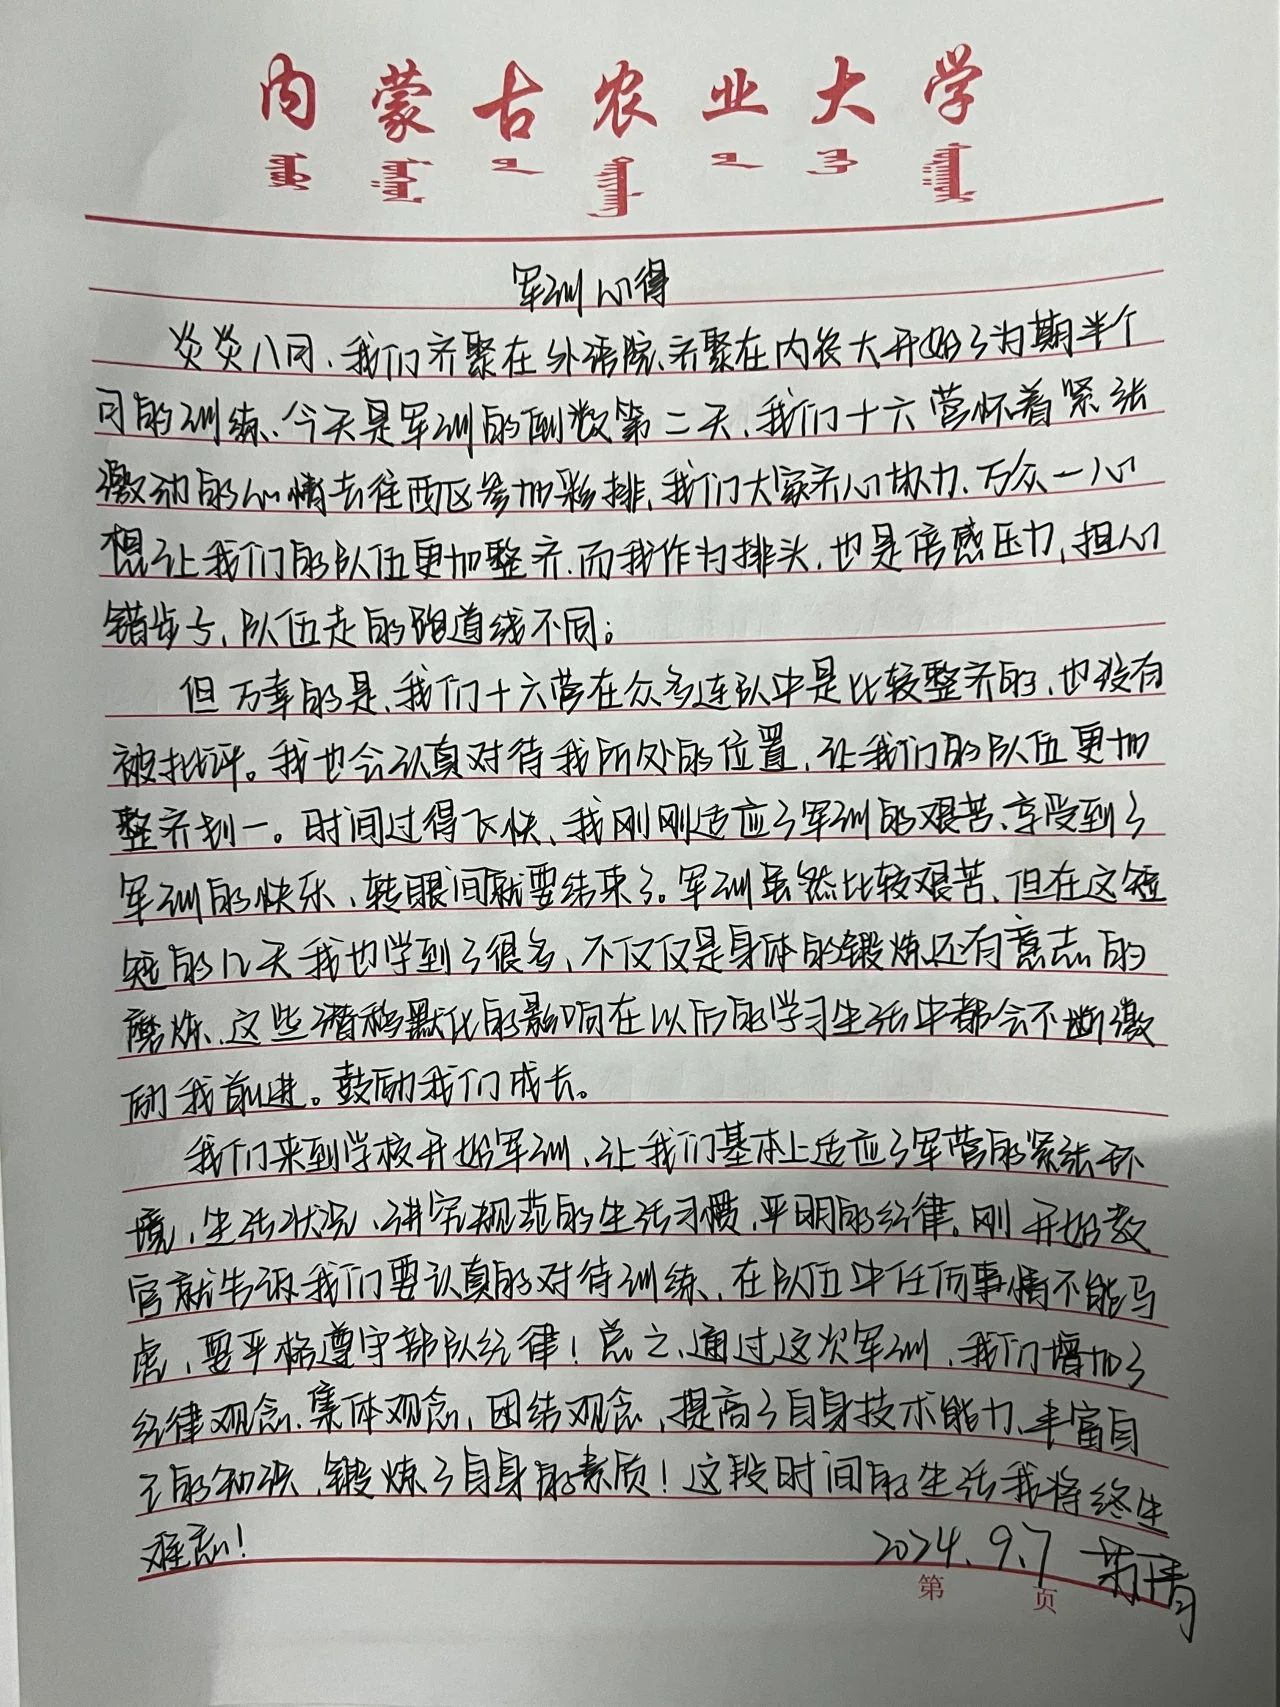 内蒙古农业大学
军训心得
炎炎八月，我们齐聚在外语院、齐聚在内农大开始了为期半个
月的训练、今天是军训的倒数第二天、我们十六营怀着紧张
激动的心情去往西区参加彩排、我们大家齐心协力、万众一心
想让我们的队伍更加整齐、而我作为排头，也是倍感压力，担心
错步子、队伍走的跑道线不同；
但万幸的是、我们十六营在众多连队中是比较整齐的、也没有
被批评。我也会认真对待我所处的位置，让我们的队伍更加
整齐划一。时间过得飞快、我刚刚适应了军训的艰苦、享受到了
军训的快乐、转眼间就要结束了。军训虽然比较艰苦、但在这短
短的几天我也学到了很多、不仅仅是身体的锻炼还有意志的
磨炼、这些潜移默化的影响在以后的学习生活中都会不断激
励我前进。鼓励我们成长。
我们来到学校开始军训、让我们基本上适应了军营的紧张环
境，生活状况、讲究规范的生活习惯，严明的纪律。刚开始教
官就告诉我们要认真的对待训练、在队伍中任何事情不能马
虎，要严格遵守部队纪律！总之、通过这次军训，我们增加了
纪律观念、集体观念、团结观念，提高了自身技术能力、丰富自
己的知识，锻炼了自身的素质！这段时间的生活我将终生
难忘！
2024.9.7
第 页